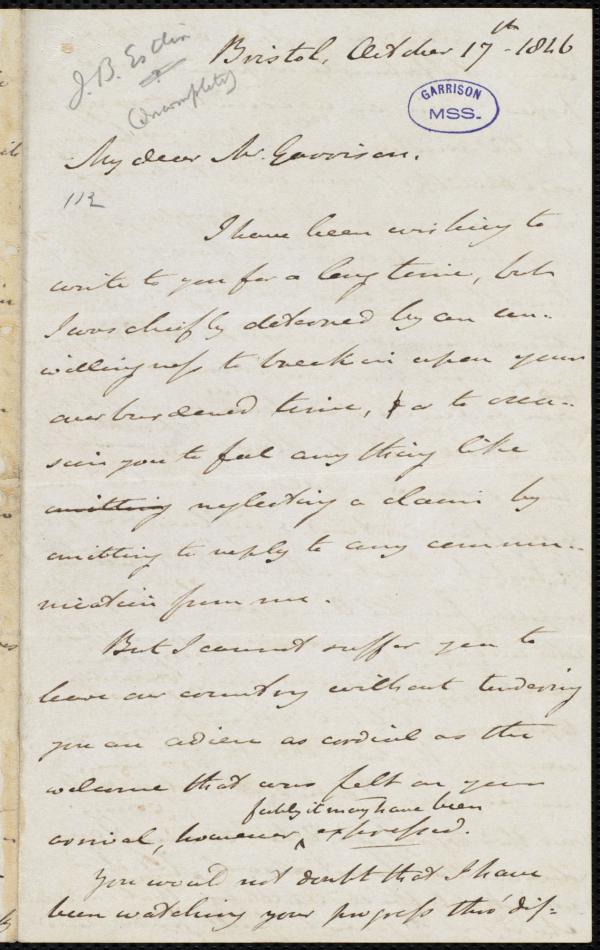 J. B. Estlin
(incomplete)
Bristol, October 17th - 1846
GARRISON
MSS.
My dear Mr. Garrison.
112
I have been wishing to
write to you for a long time, but
I was chiefly deterred by an un-
willingness to break in upon your
overburdened time, or to occa-
sion you to feel any thing like
omitting neglecting a claim by
omitting to reply to any commu-
nication from me.
But I cannot suffer you to
leave our country without tendering
you an adieu as cordial as the
welcome that was felt on your
feebly it may have been
arrival, however ‸ expressed.
You would not doubt that I have
been watching your progress thro' dif-